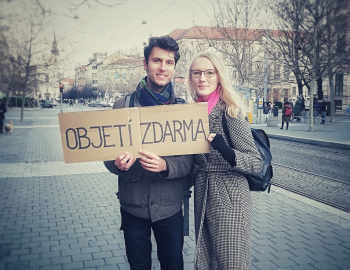 OBJETÍ ZDARMA